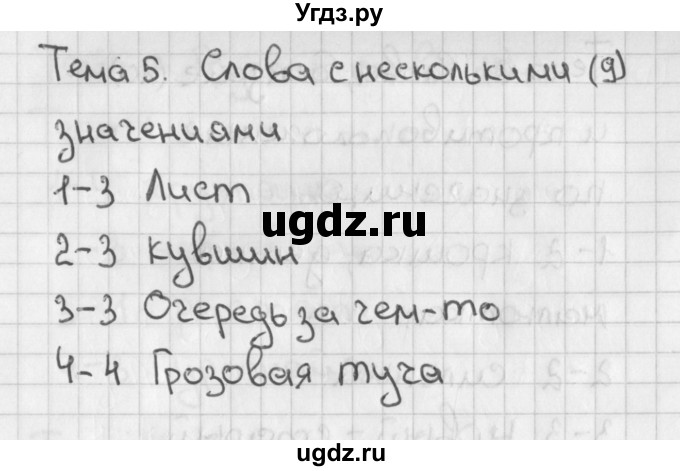 Угдз.ру
Тема 5. Слова с несколькими (9)
значениями
1-3 Лист
ugdz.ru
2-3 кувшин
3-3 Очередь за чем-то
4-4 Грозовая туча
ugdz.ru